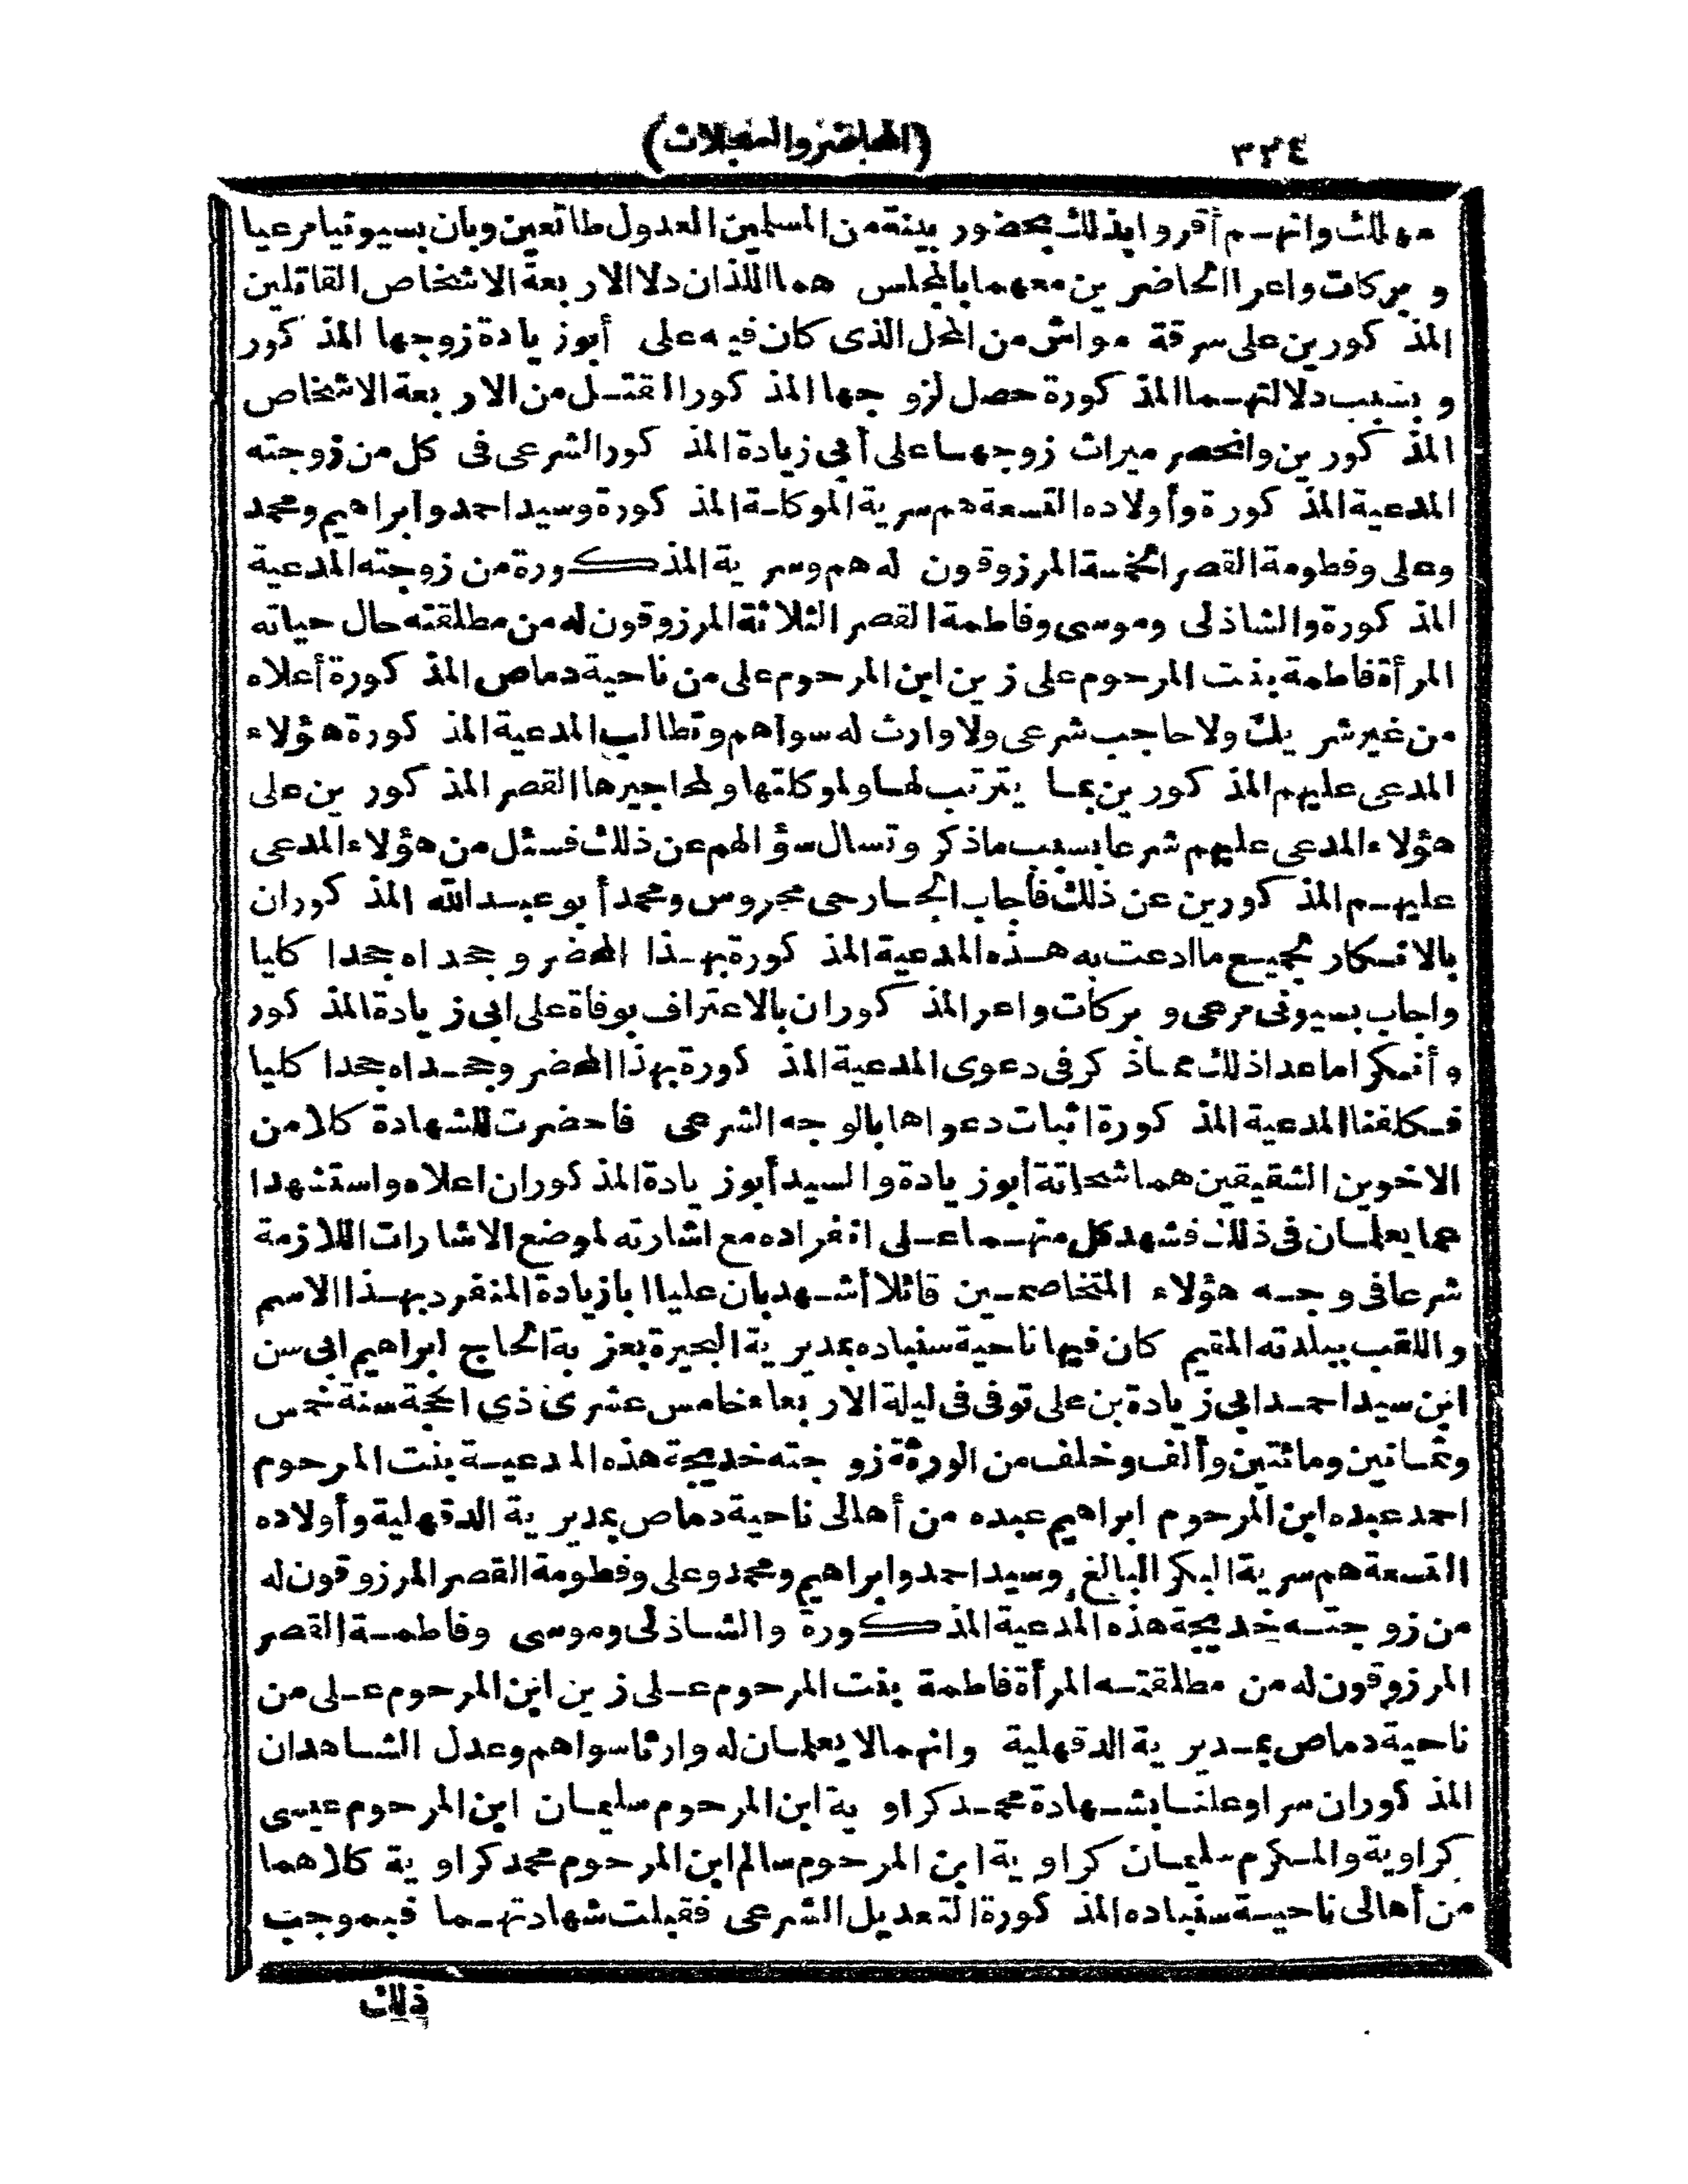 ٣٢٤
(المحاضر والسجلات)
مهلك وانهم أقروا بذلك بحضور بينة من المسلمين العدول طائعين وبان بسيونيا مرعيا
وبركات واعرا الحاضرين معهما بالمجلس هما اللذان دلا الاربعة الاشخاص القاتلين
المذكورين على سرقة مواش من المحل الذى كان فيه على أبو زيادة زوجها المذكور
وبسبب دلالتهما المذكورة حصل لزوجها المذكور القتل من الاربعة الاشخاص
المذكورين وانحصر ميراث زوجها على أبى زيادة المذكور الشرعى فى كل من زوجته
المدعية المذكورة وأولاده التسعة هم سرية الموكلة المذكورة وسيد احمد وابراهيم ومحمد
وعلى وفطومة القصر الخمسة المرزوقون له هم وسرية المذكورة من زوجته المدعية
المذكورة والشاذلى وموسى وفاطمة القصر الثلاثة المرزوقون له من مطلقته حال حياته
المرأة فاطمة بنت المرحوم على زين ابن المرحوم على من ناحية دماص المذكورة أعلاه
من غير شريك ولا حاجب شرعى ولا وارث له سواهم وتطالب المدعية المذكورة هؤلاء
المدعى عليهم المذكورين بما يترتب لها ولموكلتها ولمحاجيرها القصر المذكورين على
هؤلاء المدعى عليهم شرعا بسبب ماذكر وتسال سؤالهم عن ذلك فسئل من هؤلاء المدعى
عليهم المذكورين عن ذلك فأجاب الجارحى محروس ومحمد أبو عبد الله المذكوران
بالانكار لجميع ما ادعت به هذه المدعية المذكورة بهذا المحضر وجحداه جحدا كليا
واجاب بسيونى مرعى وبركات واعر المذكوران بالاعتراف بوفاة على ابى زيادة المذكور
وأنكرا ما عدا ذلك مماذكر فى دعوى المدعية المذكورة بهذا المحضر وجحداه جحدا كليا
فكلفنا المدعية المذكورة اثبات دعواها بالوجه الشرعى فاحضرت للشهادة كلا من
الاخوين الشقيقين هما شحاتة أبو زيادة والسيد أبو زيادة المذكوران اعلاه واستشهدا
عما يعلمان فى ذلك فشهد كل منهما على انفراده مع اشارته لموضع الاشارات اللازمة
شرعا فى وجه هؤلاء المتخاصمين قائلا أشهد بان عليا ابا زيادة المنفرد بهذا الاسم
واللقب ببلدته المقيم كان فيها ناحية سنباده بمديرية البحيرة بعزبة الحاج ابراهيم ابى سن
ابن سيد احمد ابى زيادة بن على توفى فى ليلة الاربعاء خامس عشرى ذى الحجة سنة خمس
وثمانين ومائتين وألف وخلف من الورثة زوجته خديجة هذه المدعية بنت المرحوم
احمد عبده ابن المرحوم ابراهيم عبده من أهالى ناحية دماص بمديرية الدقهلية وأولاده
التسعة هم سرية البكر البالغ وسيد احمد وابراهيم ومحمد وعلى وفطومة القصر المرزوقون له
من زوجته خديجة هذه المدعية المذكورة والشاذلى وموسى وفاطمة القصر
المرزوقون له من مطلقته المرأة فاطمة بنت المرحوم على زين ابن المرحوم على من
ناحية دماص بمديرية الدقهلية وانهما لا يعلمان له وارثا سواهم وعدل الشاهدان
المذكوران سرا وعلنا بشهادة محمد كراوية ابن المرحوم سليمان ابن المرحوم عيسى
كراوية والمكرم سليمان كراوية ابن المرحوم سالم ابن المرحوم محمد كراوية كلاهما
من أهالى ناحية سنباده المذكورة التعديل الشرعى فقبلت شهادتهما فبموجب
ذلك